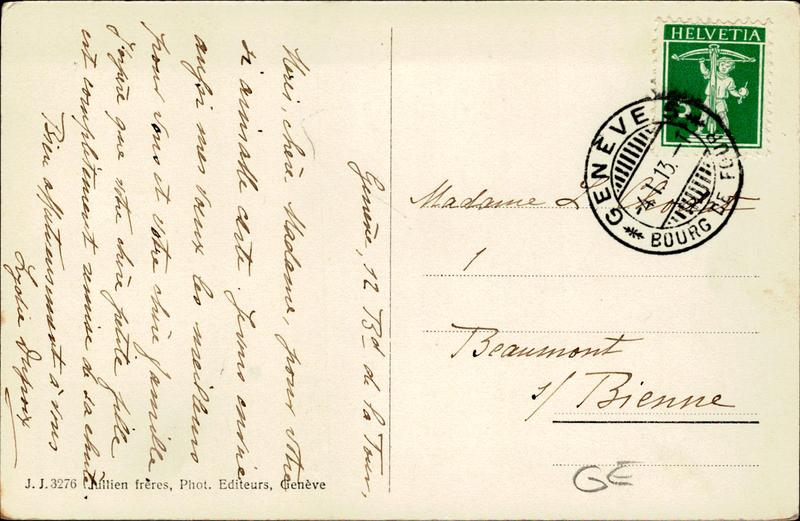 Genève, 12 Bd de la Tour,
Merci, chère Madame, pour votre
si aimable carte. Je vous envoie
aussi mes vœux les meilleurs
pour vous et votre chère famille
J'espère que votre chère petite fille
est complètement remise de sa chute.
Bien affectueusement à vous
Lydie
J. J. 3276 Jullien frères, Phot. Editeurs, Genève
HELVETIA
5
GENÈVE
4.I.13.
BOURG DE FOUR
Madame L.
1
Beaumont
s/ Bienne
GE